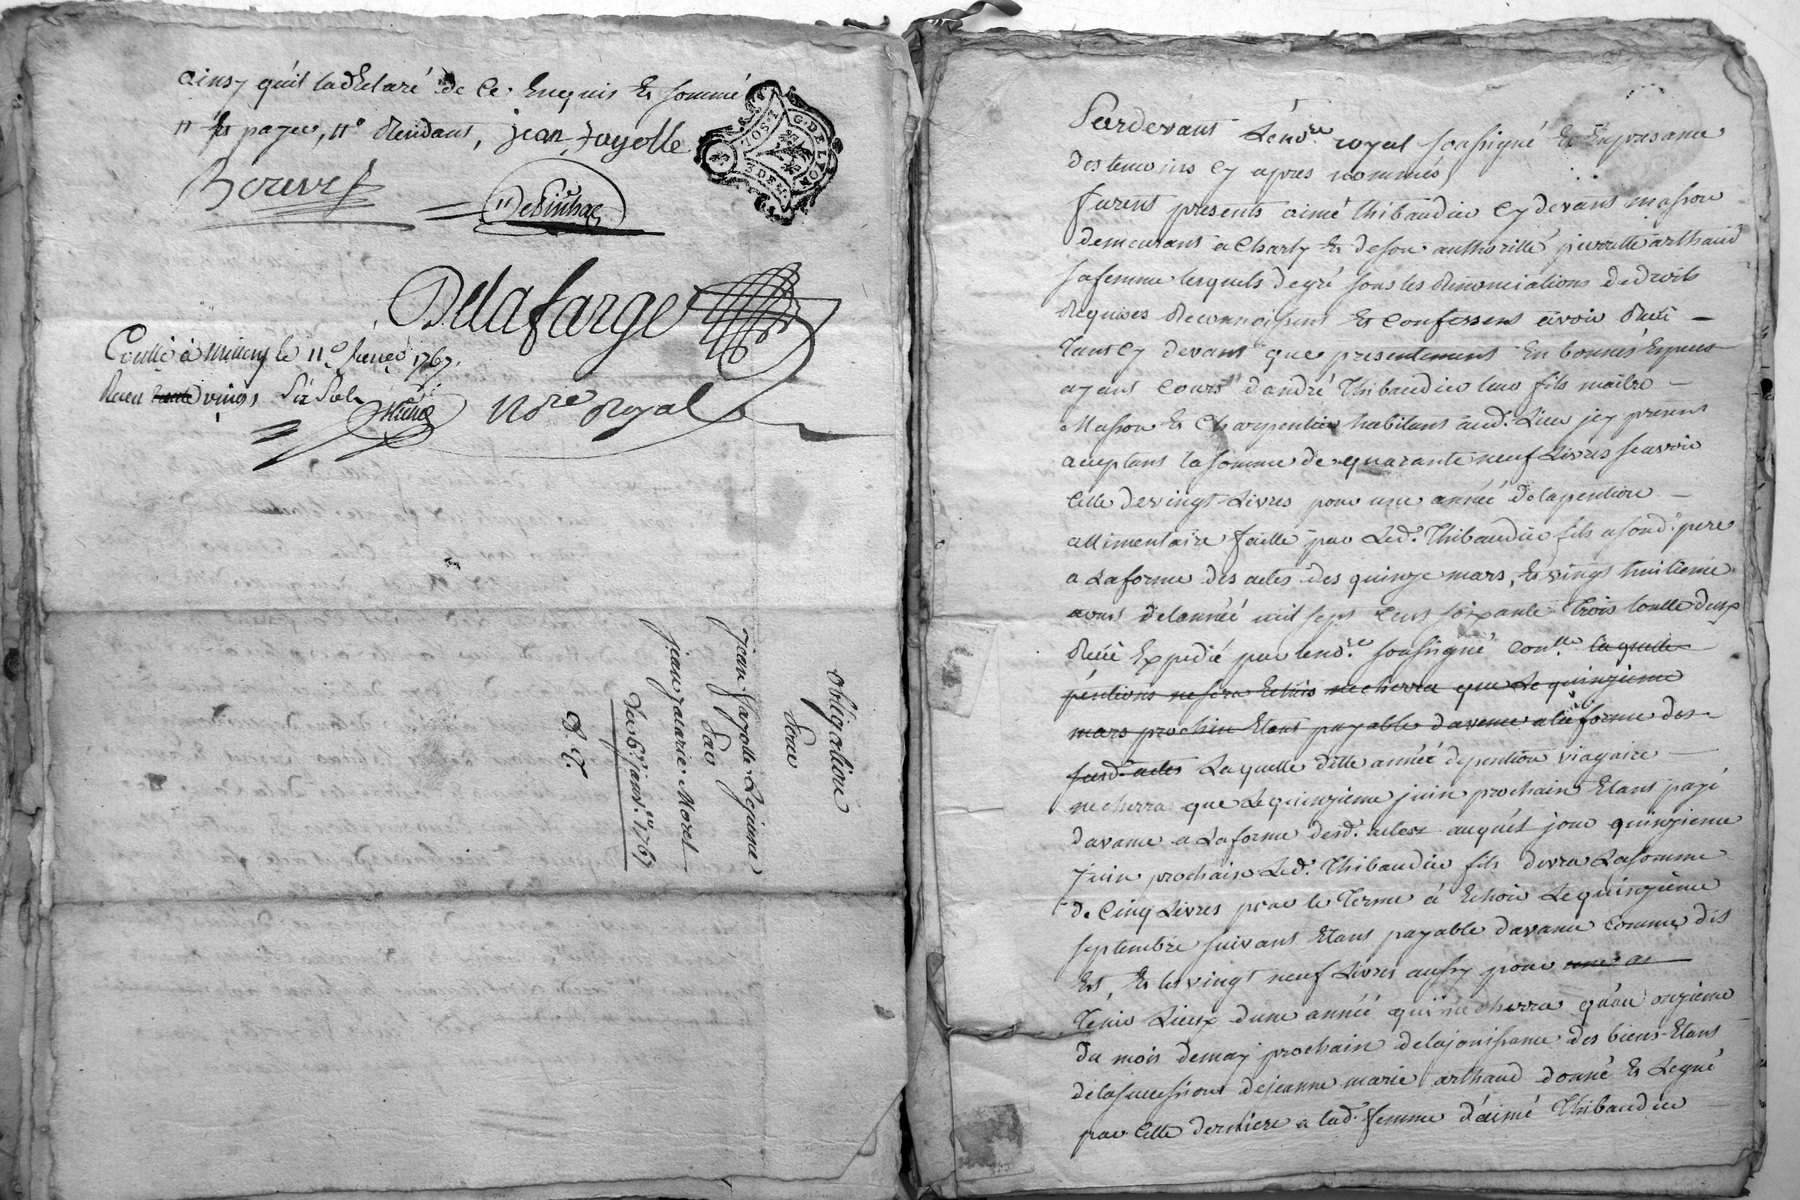 ainsy qu'il la declaré de ce enquis et sommé
pages, rendant, jean fayolle
Delafarge
Coullé à Millery le 11e Janer 1767.
Receu vingt Six Sols
Nore royal
G. DE LYON
obligation
pour
jean fayolle Lejeune
par
jean marie Morel
Du 6e janv.er 1767
Pardevant Le nore royal soussigné Et En presance
des temoins Cy apres nommés,
furent presents aimé thibaudier Cy devant masson
demeurant a Charly Et de son authorité pierrette arthaud
sa femme lesquels de gré sous les renonciations de droits
Requises Reconnoissent Et Confessent avoir Receu
tant Cy devant que presentement En bonnes Especes
ayant Cours d'andré Thibaudier leur fils maitre
Masson Et Charpentier habitant aud. Lieu jcy present
acceptant la somme de quarante neuf Livres scavoir
Celle de vingt Livres pour une année de la pention
allimentaire faitte par Led. Thibaudier fils a sond. pere
a La forme des actes des quinze mars, Et vingt huitieme
avril de lannée mil sept Cent soixante trois
Receu Expedié par le nore soussigné Con.lle la quelle
pentions ne sera Echus ne cherra que Le quinzieme
mars prochin Etant payable davance a la forme des
susd. actes La quelle ditte année de pention viagaire
ne cherra que Le quinzieme juin prochain Etant payé
davance a La forme desd. actes auquel jour quinzieme
juin prochain Led. Thibaudier fils devra La somme
de Cinq Livres pour le terme à Echoir Le quinzieme
septembre suivant Etant payable davance comme dit
Est, Et les vingt neuf Livres aussy pour
d'une année qui ne cherra qu'au onzieme
du mois de may prochain de la jouissance des biens Etant
de la succession de jeanne marie arthaud donné Et Legué
par Cette derniere a lad. femme d'aimé Thibaudier